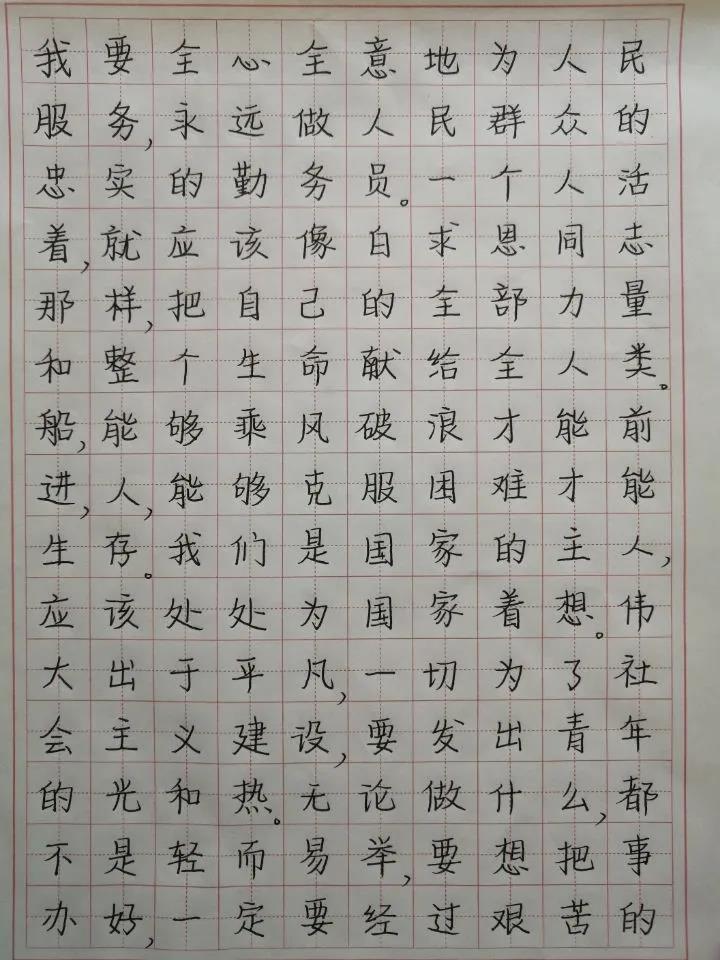 我要全心全意地为人民
服务,永远做人民群众的
忠实的勤务员。一个人活
着,就应该像白求恩同志
那样,把自己的全部力量
和整个生命献给全人类。
船,能够乘风破浪才能前
进,人,能够克服困难才能
生存。我们是国家的主人,
应该处处为国家着想。伟
大出于平凡,一切为了社
会主义建设,要发出青年
的光和热。无论做什么,都
不是轻而易举,要想把事
办好,一定要经过艰苦的